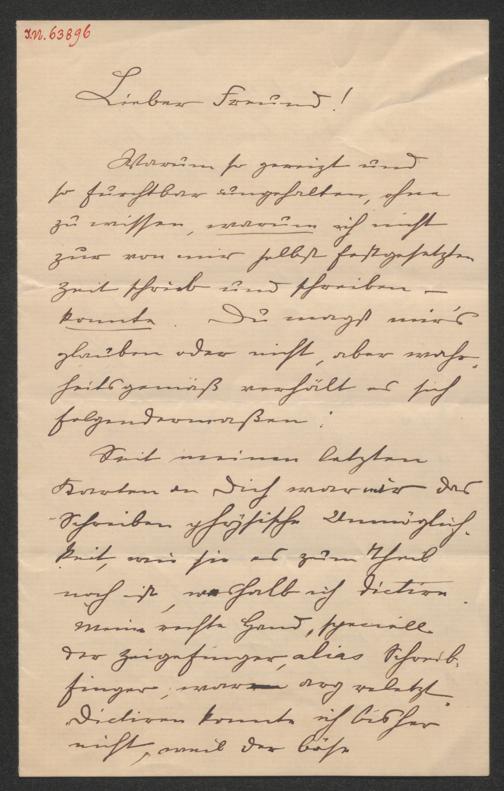 IN. 63896
Lieber Freund!
Warum so gereizt und
so furchtbar ungehalten, ohne
zu wissen, warum ich nicht
zur von mir selbst festgesetzten
Zeit schrieb und schreiben –
konnte. Du magst mir's
glauben oder nicht, aber wahr-
heitsgemäß verhält es sich
folgendermaßen:
Seit meinen letzten
Karten an Dich war mir das
Schreiben physische Unmöglich-
keit, wie sie es zum Theil
noch ist, weshalb ich dictire.
Meine rechte Hand, speciell
der Zeigefinger, alias Schreib-
finger, war arg verletzt.
Dictiren konnte ich bisher
nicht, weil der böse